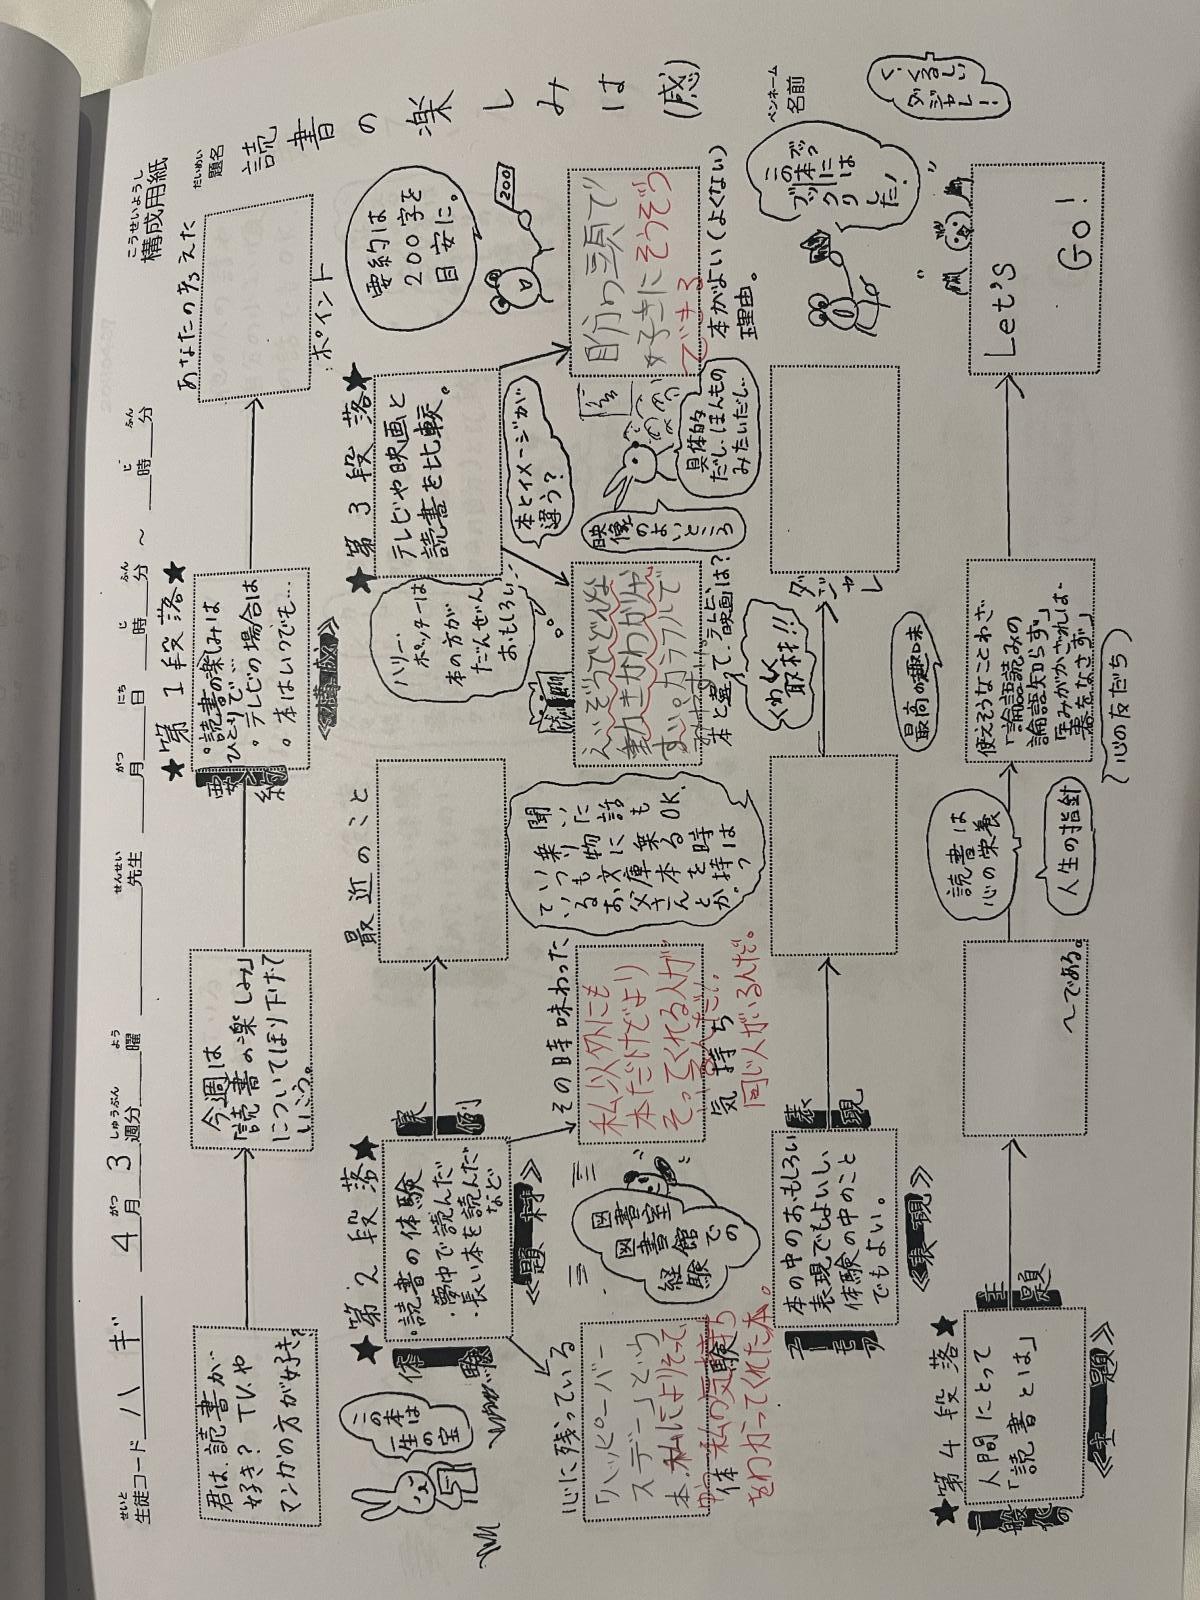 構成用紙
こうせいようし
題名
だいめい
読書の楽しみは(感)
ペンネーム
名前
生徒コード ハギ 4月3週分 曜 先生 月 日 時 分 ～ 時 分
せいと
がつ
しゅうぶん
よう
せんせい
がつ
にち
じ
ふん
じ
ふん
★第1段落★
君は、読書が
好き？TVや
マンガの方が好き？
今週は
「読書の楽しみ」
についてほり下げて
いこう。
要約
。読書の楽しみは
ひとりで…
。テレビの場合は
。本はいつでも…
《構成》
あなたの考えた
ポイント
要約は
200字を
目安に。
200
★第2段落★
体験
。読書の体験
・夢中で読んだ
・長い本を読んだ
など
《題材》
実例
最近のこと
この
本は
一生
の宝
心に残っている
「ハッピーバー
スデー」という
本。私によりそって、
私の気持ち
をわかってくれた本。
体験
図書室
図書館
での
経験
その時味わった
私以外にも
本だけでより
そってくれる人が
同じ人がいるんだ。
気持ち
聞いた話もOK.
乗り物に乗る時は
いつも文庫本を持っ
ているお父さんとか。
★第3段落★
テレビや映画と
読書を比較。
ハリー・
ポッターは
本の方が
だんぜん
おもしろい…
本とイメージが
違う？
本と違って、テレビ、
映画は？
映像
のよいところ
具体的
だし、ほんもの
みたいだし…
自分の頭で
好きにそうぞう
できる
本がよい(よくない)
理由。
ユーモア
本の中のおもしろい
表現でもよいし、
体験の中のこと
でもよい。
《表現》
表現
くわしく
取材!!
ダジャレ
この本に
ズッ
ブックリ
した！
く、くるしい
ダジャレ！
★第4段落★
一般化の
人間にとって
「読書とは」
《主題》
主題
～である。
読書は
心の栄養
人生の指針
最高の趣味
使えそうなことわざ
「論語読みの
論語知らず」
「玉みがかざれば
器をなさず」
心の友だち
Let's
Go！